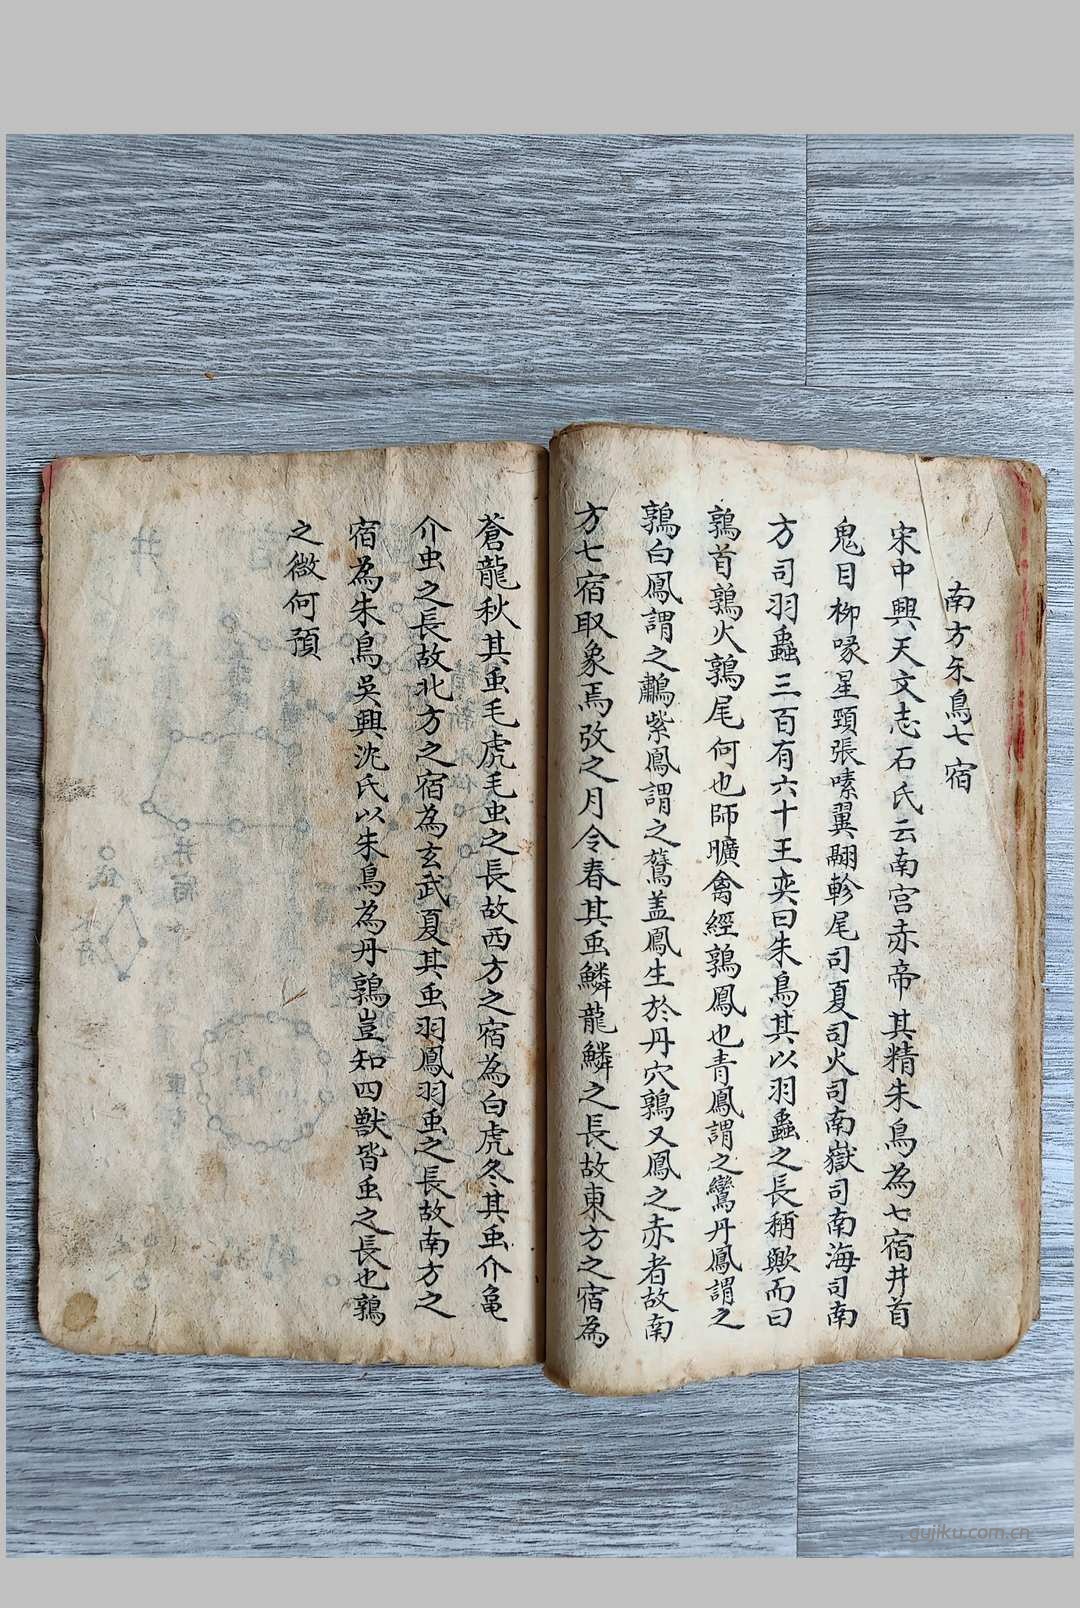 南方朱鳥七宿
宋中興天文志石氏云南宫赤帝其精朱鳥為七宿井首
鬼目柳喙星頸張嗉翼翮軫尾司夏司火司南嶽司南海司南
方司羽蟲三百有六十王奕曰朱鳥其以羽蟲之長稱歟而曰
鶉首鶉火鶉尾何也師曠禽經鶉鳳也青鳳謂之鸞丹鳳謂之
鶉白鳳謂之鷫紫鳳謂之鷟盖鳳生於丹穴鶉又鳳之赤者故南
方七宿取象焉攷之月令春其虫鱗龍鱗之長故東方之宿為
蒼龍秋其虫毛虎毛虫之長故西方之宿為白虎冬其虫介龜
介虫之長故北方之宿為玄武夏其虫羽鳳羽虫之長故南方之
宿為朱鳥吳興沈氏以朱鳥為丹鶉豈知四獸皆虫之長也鶉
之微何預
gujiku.com.cn